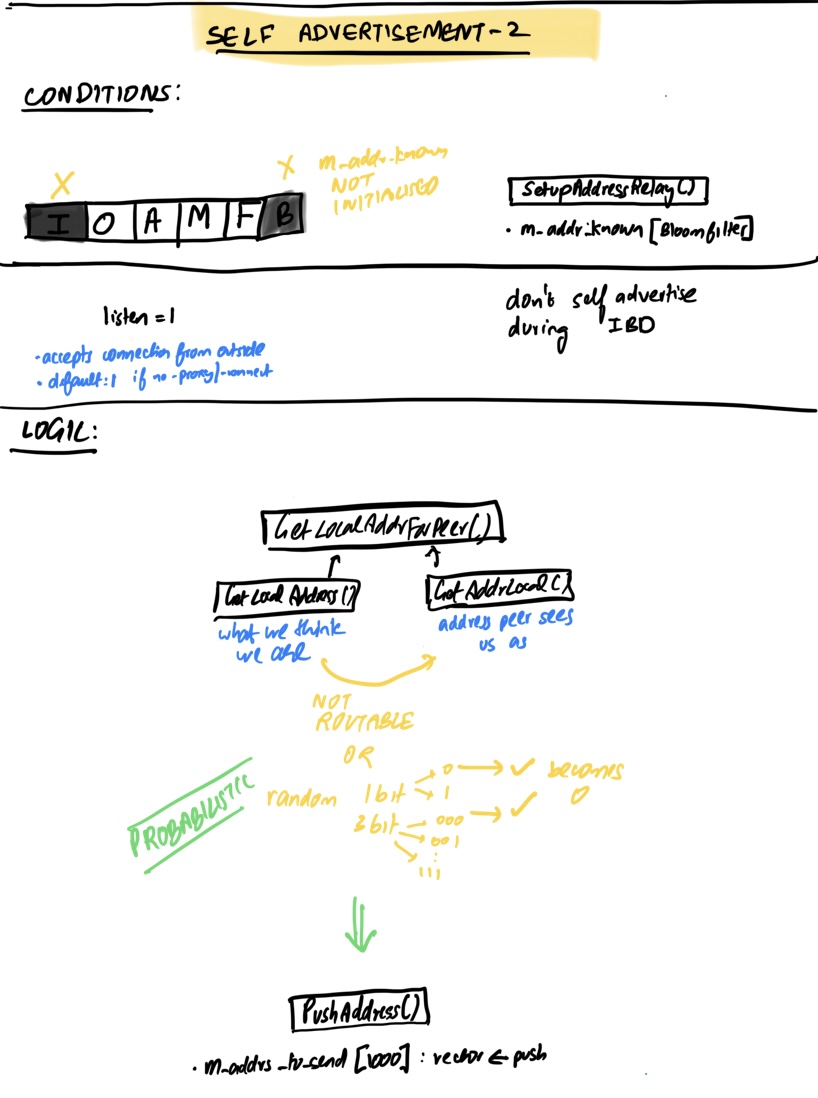 SELF ADVERTISEMENT-2
CONDITIONS:
X
X
m_addr_known
NOT
INITIALISED
I O A M F B
SetupAddressRelay()
• m_addr_known [Bloom filter]
listen = 1
• accepts connection from outside
• default: 1 if no -proxy/-connect
don't self advertise
during IBD
LOGIC:
GetLocalAddrForPeer()
GetLocalAddress()
GetAddrLocal()
what we think
we are
address peer sees
us as
NOT
ROUTABLE
OR
PROBABILISTIC
random 1bit → 0 → ✓ becomes
→ 1 0
3bit → 000 → ✓
→ 001
:
→ 111
PushAddress()
• m_addrs_to_send [1000] : vector ← push